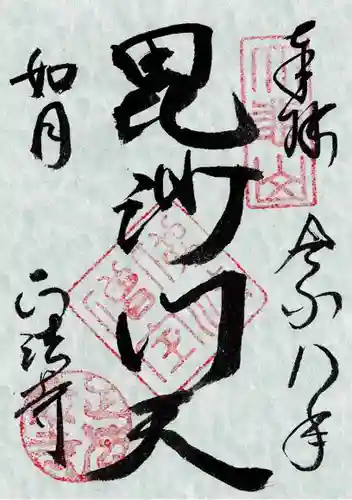 奉拝 令和八年
毘沙門天
如月
正法寺